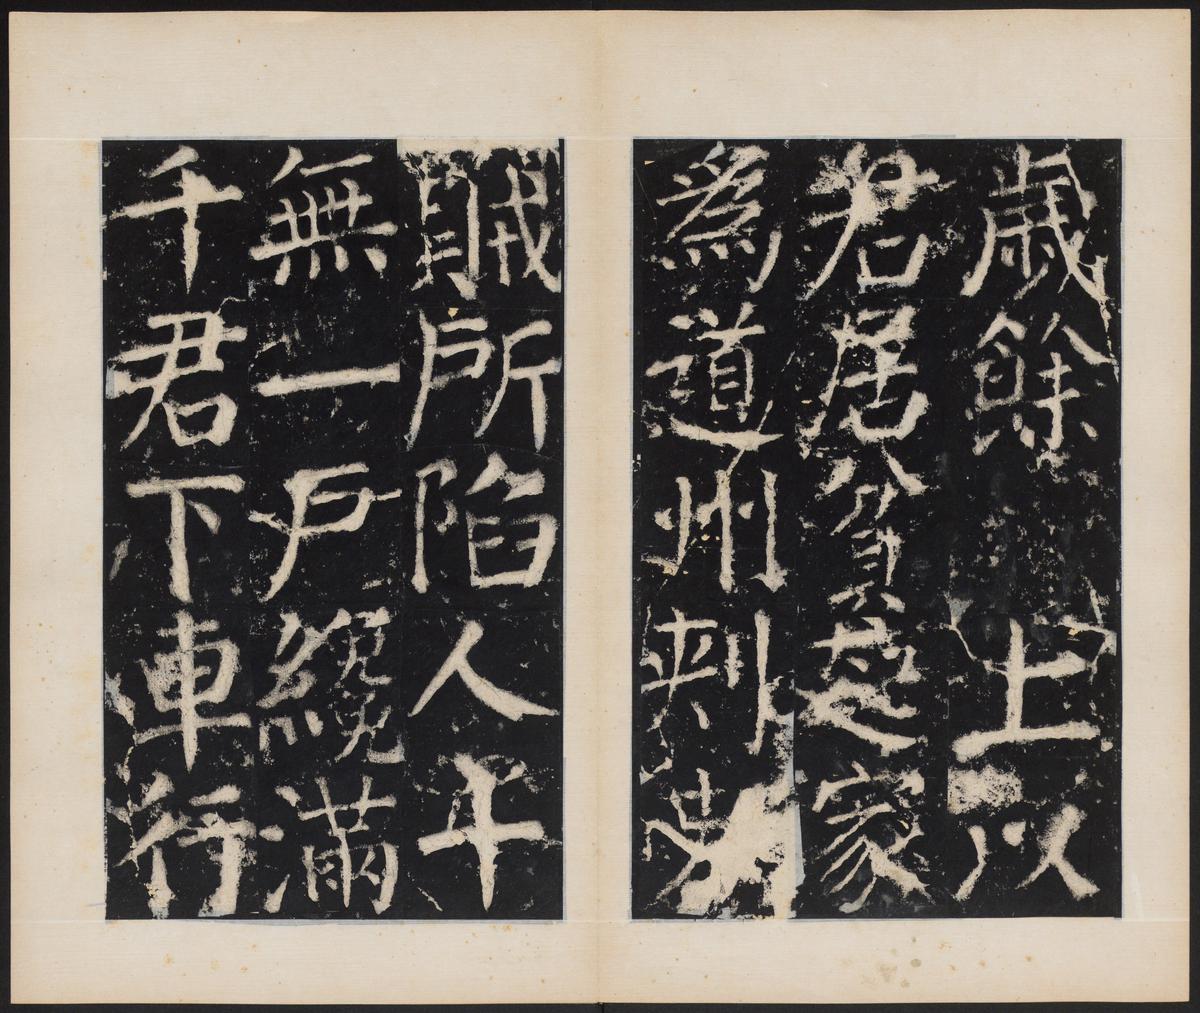 歲餘上以
君居貧起家
爲道州刺史
賊所陷人十
無一戶纔滿
千君下車行